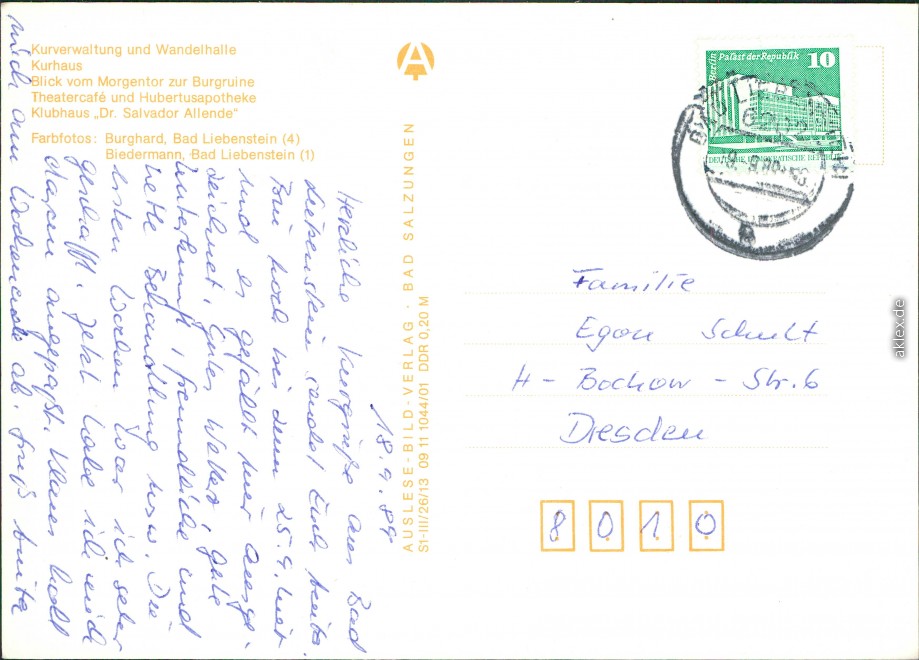 Kurverwaltung und Wandelhalle
Kurhaus
Blick vom Morgentor zur Burgruine
Theatercafé und Hubertusapotheke
Klubhaus „Dr. Salvador Allende"
Farbfotos: Burghard, Bad Liebenstein (4)
Biedermann, Bad Liebenstein (1)
18.9.89
Herzliche Kurgrüße aus Bad
Liebenstein sendet Euch
Bin noch bis zum 25.9. hier
und es gefällt mir ausge-
zeichnet. Gutes Wetter, gute
Unterkunft, freundliche und
nette Behandlung usw. Die
ersten Wochen war ich sehr
geschafft. Jetzt habe ich mich
daran angepaßt. Klaus holt
mich am Wochenende ab. Gruß
AUSLESE-BILD-VERLAG · BAD SALZUNGEN
S1-III/26/13 09 11 1044/01 DDR 0,20 M
Berlin Palast der Republik 10
DEUTSCHE DEMOKRATISCHE REPUBLIK
Familie
Egon Schult
H-Bochow-Str. 6
Dresden
8010
aklex.de